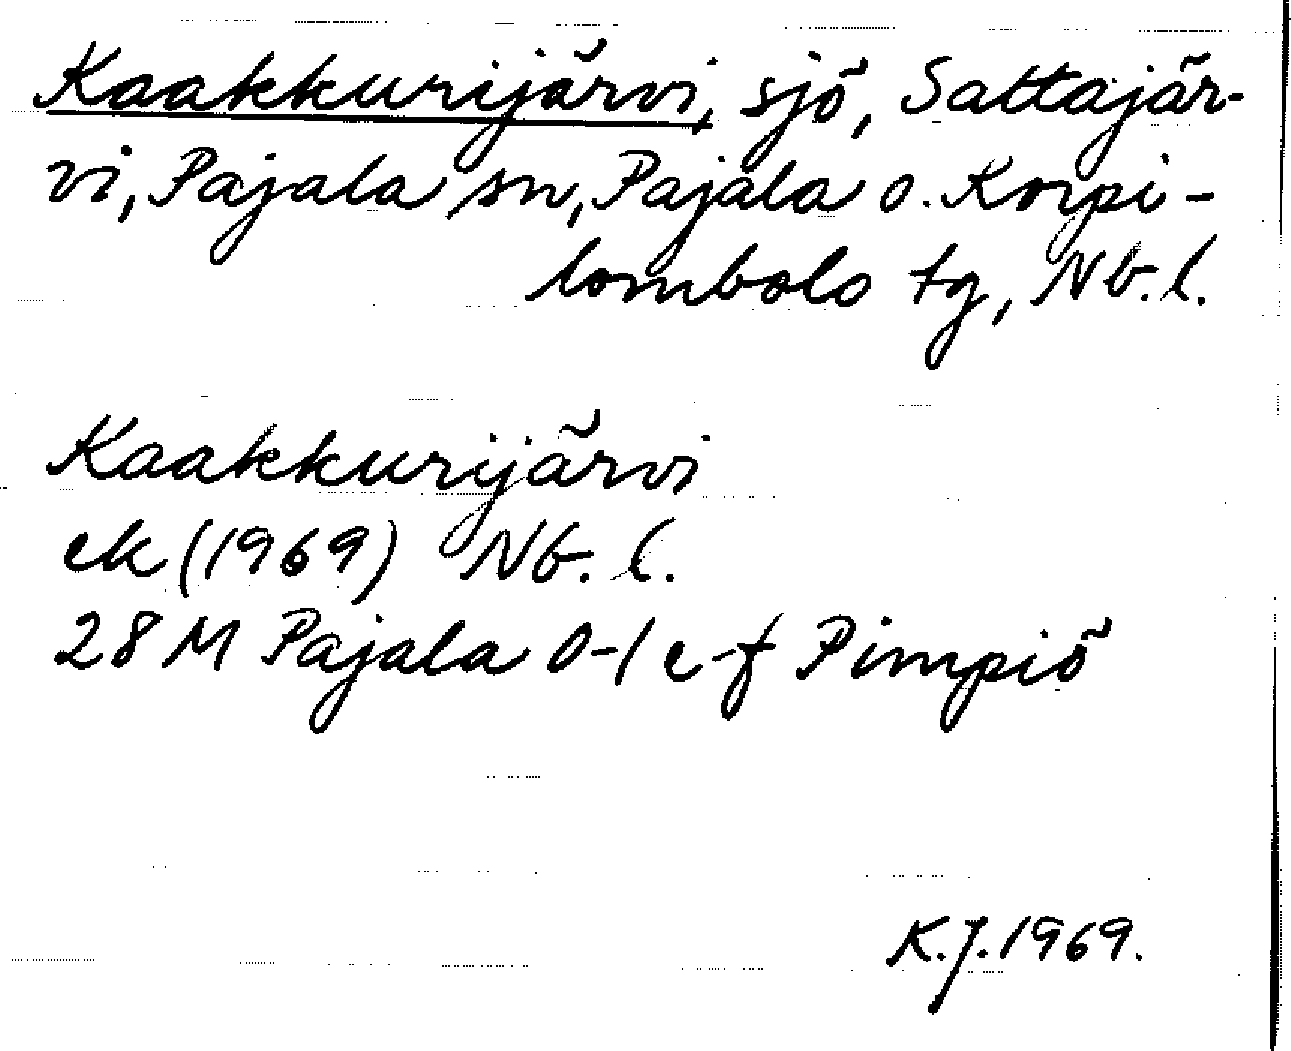 Kaakkurijärvi, sjö, Sattajär-
vi, Pajala sn, Pajala o. Korpi-
lombolo tg, Nb. l.
Kaakkurijärvi
ek (1969) Nb. l.
28 M Pajala 0-1 e-f Pimpiö
K.J. 1969.